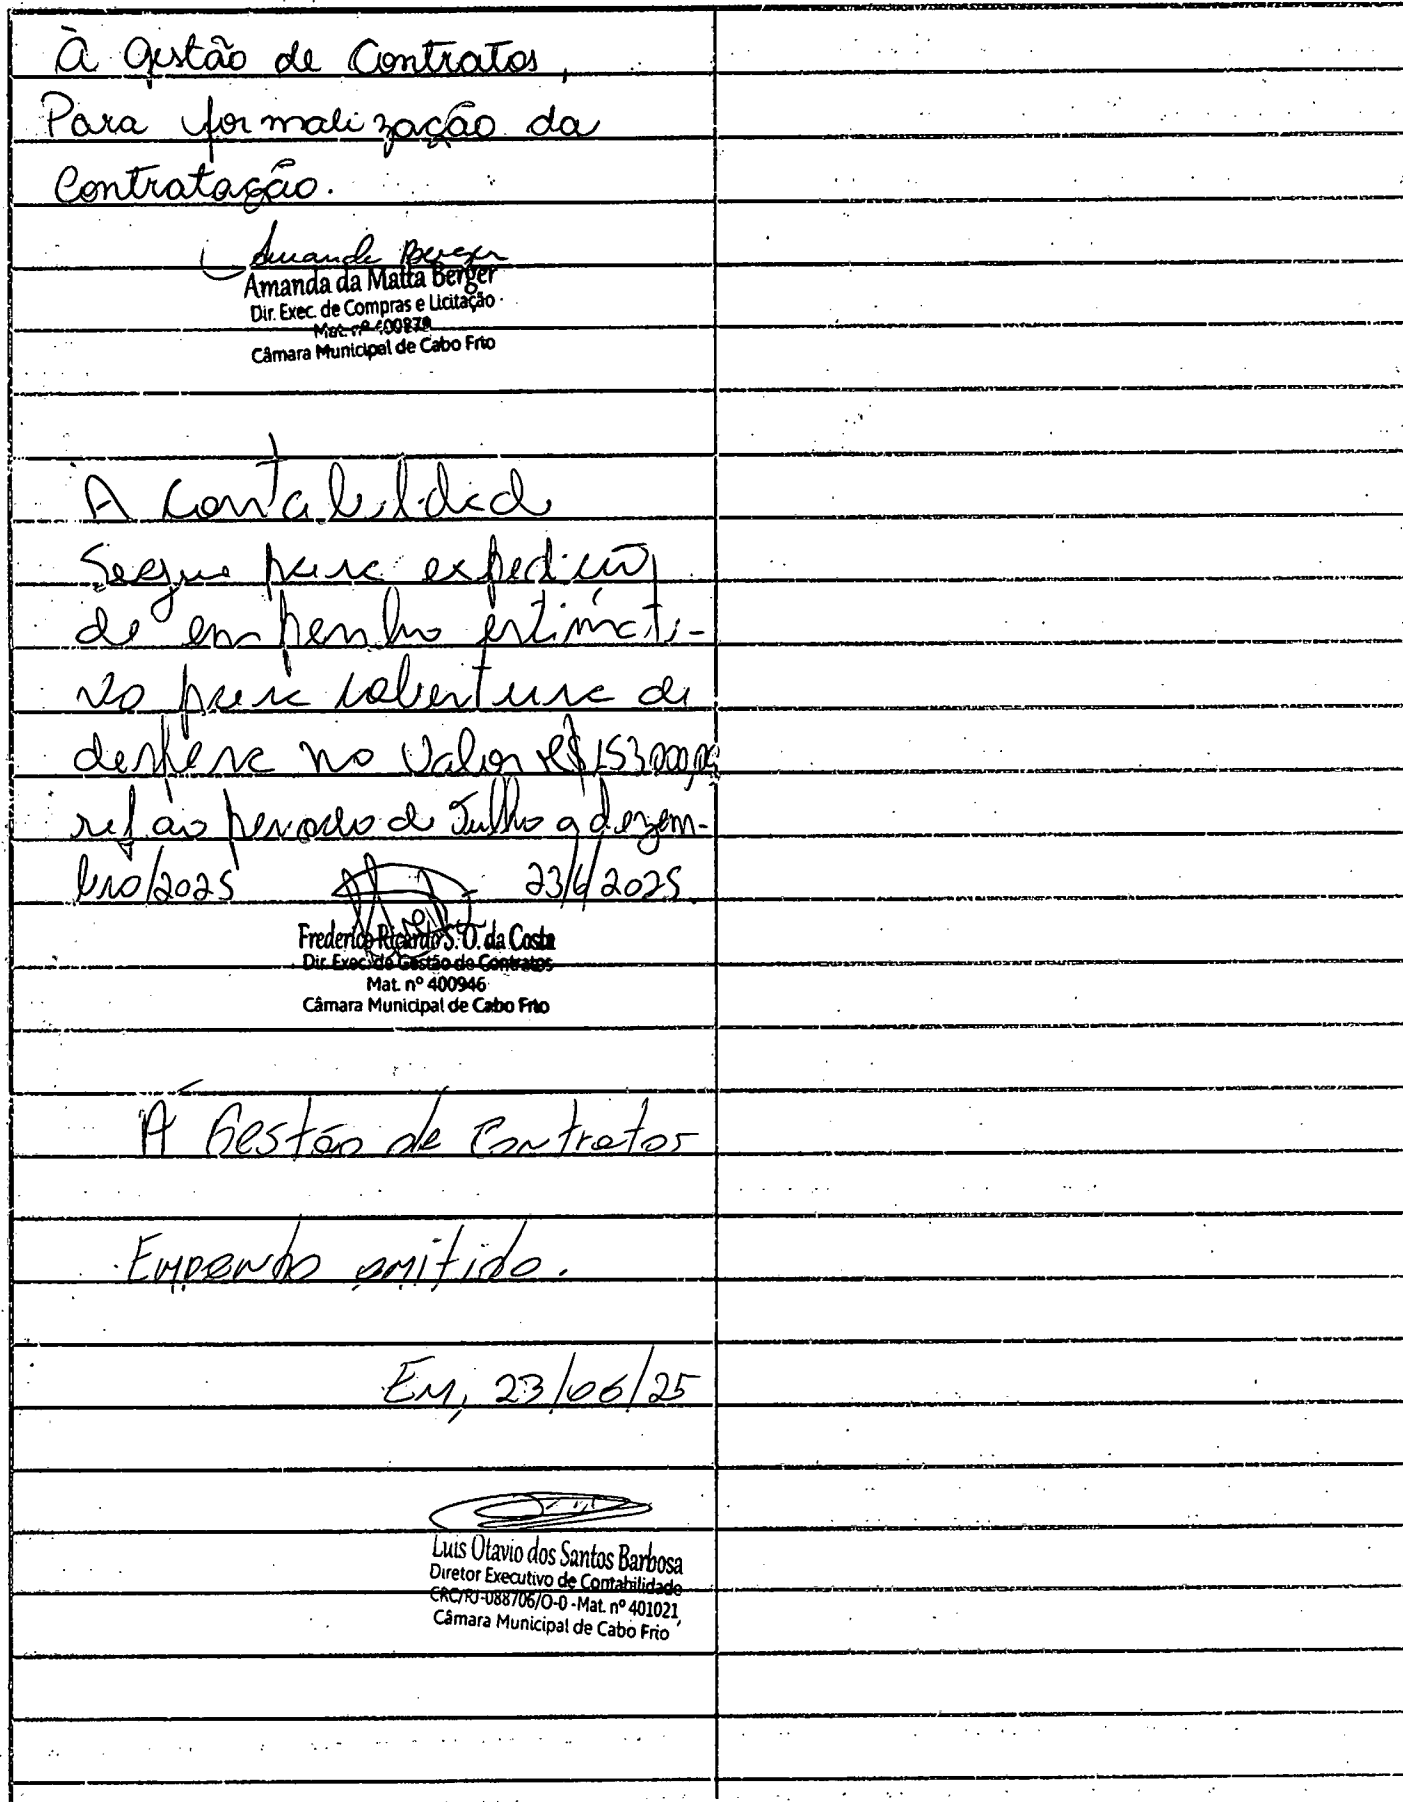 À Gestão de Contratos,
Para formalização da
Contratação.
Amanda Berger
Amanda da Matta Berger
Dir. Exec. de Compras e Licitação
Mat. nº 400878
Câmara Municipal de Cabo Frio
A Contabilidad
Segue para expedição
de empenho estimati-
vo para cobertura de
despesa no valor R$ 153.000,00
ref ao período de Julho a dezem-
bro/2025 23/6/2025
Frederico Ricardo S. O. da Costa
Dir. Exec. de Gestão de Contratos
Mat. nº 400946
Câmara Municipal de Cabo Frio
À Gestão de Contratos
Empenho emitido.
Em, 23/06/25
Luis Otavio dos Santos Barbosa
Diretor Executivo de Contabilidade
CRC/RJ-088706/O-0 - Mat. nº 401021
Câmara Municipal de Cabo Frio